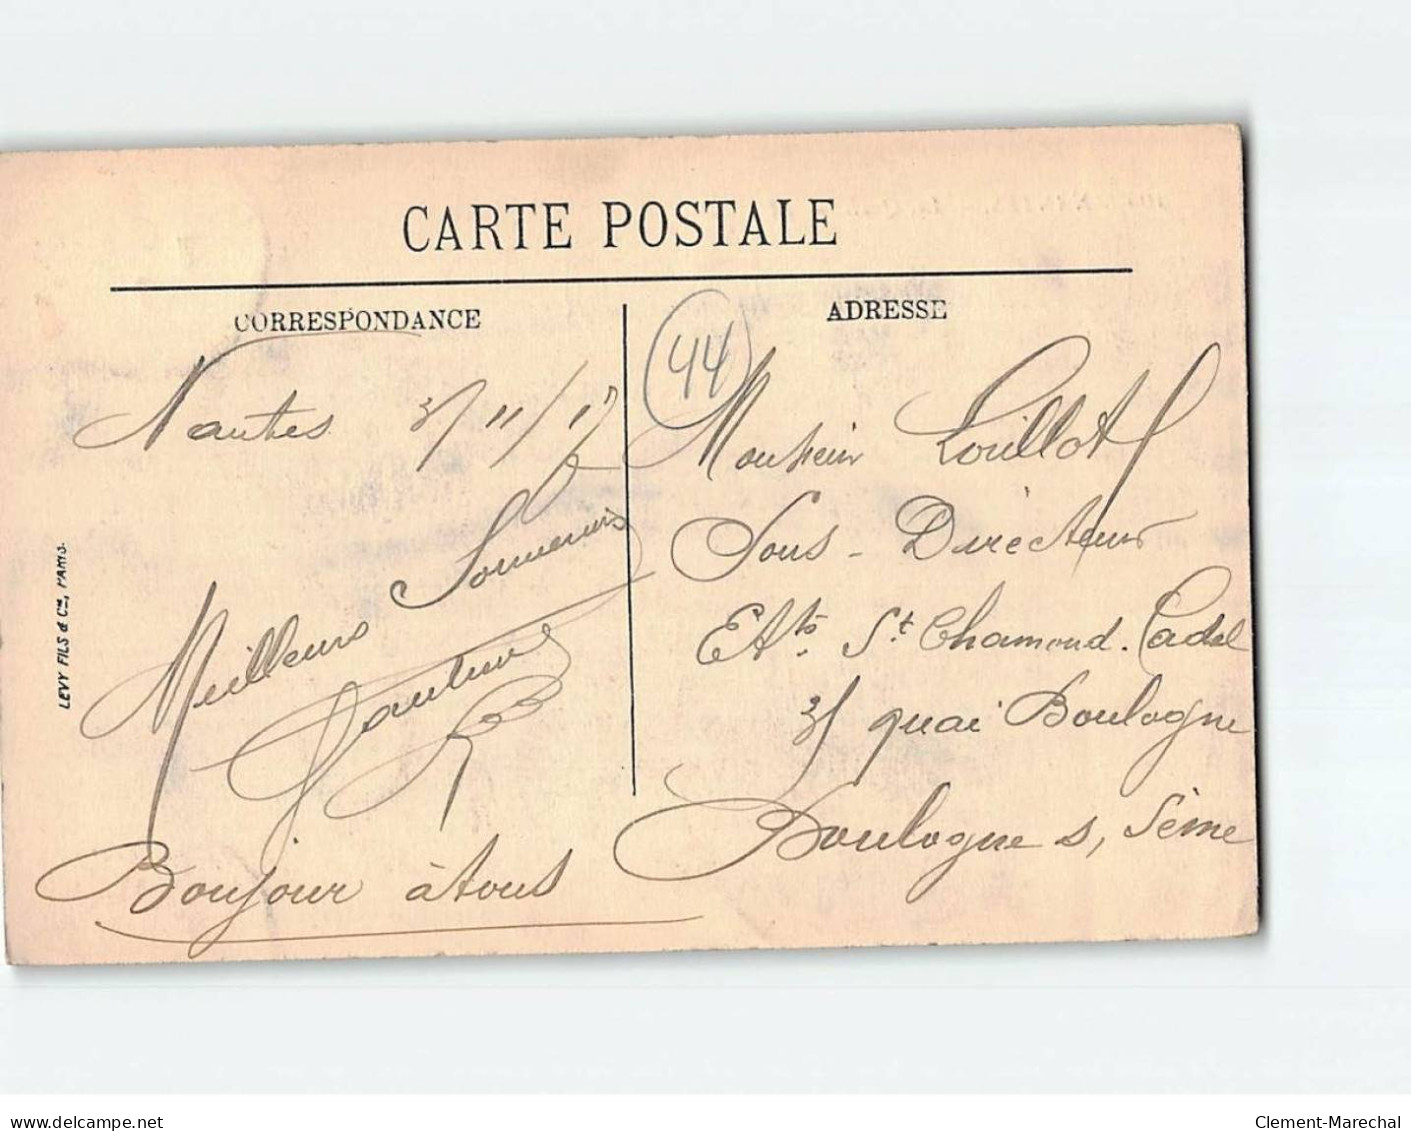 CARTE POSTALE
CORRESPONDANCE
ADRESSE
44
Nantes 3/11/17
Meilleurs Souvenirs
Bonjour à tous
LEVY FILS & Cie, PARIS.
Monsieur Louillot
Sous-Directeur
Ets St Chamond. Cadal
31 quai Boulogne
Boulogne s, Seine
delcampe.net
Clement-Marechal